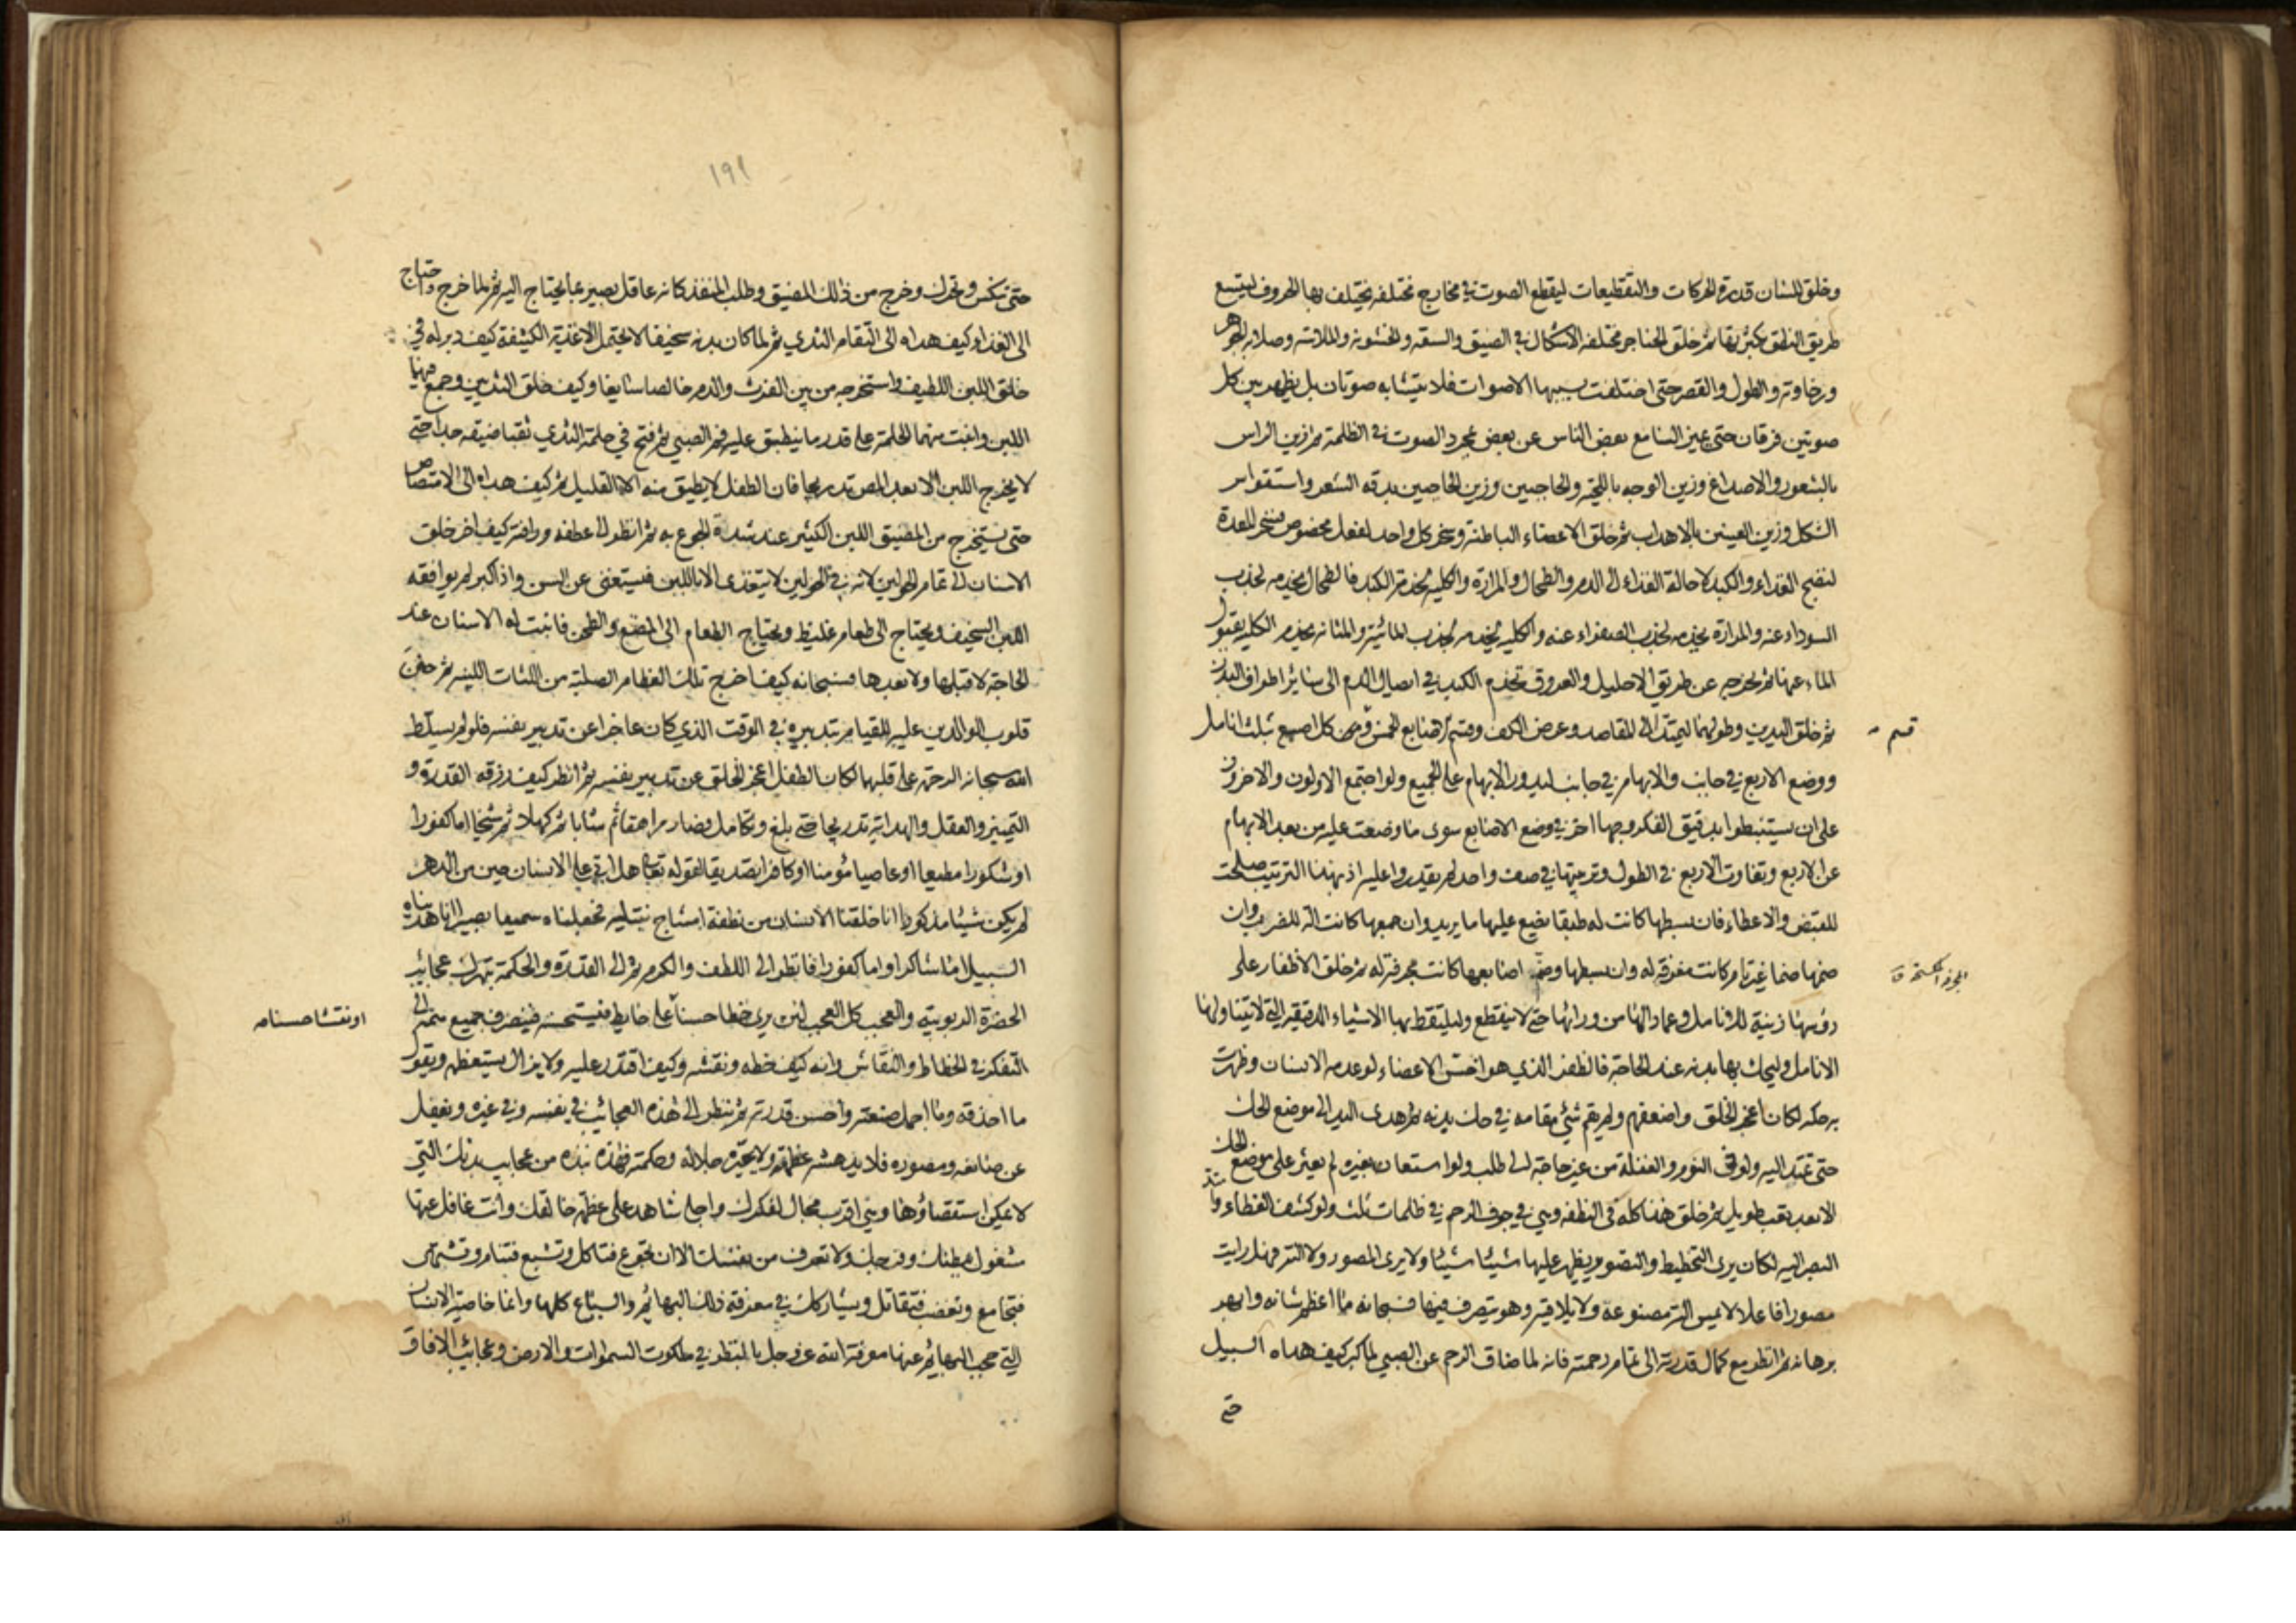 وخلق للسان قدرة للحركات والتقطيعات ليقطع الصوت في مخارج مختلفه يختلف بها الحروف ليتسع
طريق النطق بكثرتها ثم خلق الحناجر مختلفه الاشكال في الضيق والسعة والخشونة والملاسة وصلابه الجوهر
ورخاوته والطول والقصر حتى اختلفت بسببها الاصوات فلا يتشابه صوتان بل يظهر بين كل
صوتين فرقان حتى يميز السامع بعض الناس عن بعض بمجرد الصوت في الظلمة ثم زين الراس
بالشعور والاصداغ وزين الوجه باللحية والحاجبين وزين الحاجبين بدقه الشعر واستقواس
الشكل وزين العينين بالاهداب ثم خلق الاعضاء الباطنة وسخر كل واحد لفعل مخصوص فسخر المعدة
لنضج الغذاء والكبد لاحالة الغذاء الى الدم والطحال والمرارة والكليه لخدمة الكبد فالطحال يخدمه بجذب
السوداء عنه والمرارة يخدمه بجذب الصفراء عنه والكليه يخدمه بجذب المائية والمثانه يخدم الكليه بقبول
الماء عنها ثم يخرجه عن طريق الاحليل والعروق تخدم الكبد في ايصال الدم الى سائر اطراف البدن
ثم خلق اليدين وطولهما ليمتد الى المقاصد وعرض الكف وقسم الاصابع الخمس وقسم كل اصبع بثلث انامل
قسم
ووضع الاربع في جانب والابهام في جانب ليدور الابهام على الجميع ولو اجتمع الاولون والاخرون
على ان يستنبطوا بدقيق الفكر وجها اخر في وضع الاصابع سوى ما وضعت عليه من بعد الابهام
عن الاربع وتفاوت الاربع في الطول وترتيبها في صف واحد لم يقدروا عليه اذ بهذا الترتيب صلحت
للقبض والاعطاء فان بسطها كانت له طبقا يضع عليها ما يريد وان جمعها كانت آلة للضرب وان
ضمها ضما غير تام كانت مغرفة له وان بسطها وضم اصابعها كانت مجرفة له ثم خلق الاظفار على
رؤسها زينة للانامل وعمادا لها من ورائها حتى لا ينقطع وليلتقط بها الاشياء الدقيقة التي لا تتناولها
الانامل وليحك بها بدنه عند الحاجة فالظفر الذي هو اخس الاعضاء لو عدمه الانسان وظهرت
به حكه لكان اعجز الخلق واضعفهم ولم يقم شيء مقامه في حك بدنه ثم هدى اليد الى موضع الحك
حتى تمتد اليه ولو في النوم والغفلة من غير حاجة الى طلب ولو استعان بغيره لم يعثر على موضع الحك
الا بعد تعب طويل ثم خلق هذا كله في النطفه وهي في جوف الرحم في ظلمات ثلث ولو كشف الغطاء وامتد
البصر اليه لكان يرى التخطيط والتصوير يظهر عليها شيئا شيئا ولا يرى المصور ولا آلته فهل رايت
مصورا فاعلا لا يمس آلته مصنوعه ولا يلاقيه وهو يتصرف فيها فسبحانه ما اعظم شانه وابهر
برهانه ثم انظر مع كمال قدرته الى تمام رحمته فانه لما ضاق الرحم عن الصبي لما كبر كيف هداه السبيل
حتى
١٩١
حتى تنكس وتحرك وخرج من ذلك المضيق وطلب المنفذ كانه عاقل بصير بما يحتاج اليه ثم لما خرج واحتاج
الى الغذاء كيف هداه الى التقام الثدي ثم لما كان بدنه سخيفا لا يحتمل الاغذية الكثيفة كيف دبر له في
خلق اللبن اللطيف واستخرجه من بين الفرث والدم خالصا سائغا وكيف خلق الثديين وجمع فيهما
اللبن وانبت منهما الحلمة على قدر ما ينطبق عليه فم الصبي ثم فتح في حلمة الثدي ثقبا ضيقه جدا حتى
لا يخرج اللبن الا بعد المص تدريجا فان الطفل لا يطيق منه الا القليل ثم كيف هداه الى الامتصاص
حتى يستخرج من المضيق اللبن الكثير عند شدة الجوع به ثم انظر الى عطفه ورافته كيف اخر خلق
الاسنان الى تمام الحولين لانه في الحولين لا يتغذى الا باللبن فيستغنى عن السن واذا كبر لم يوافقه
اللبن السخيف ويحتاج الى طعام غليظ ويحتاج الطعام الى المضغ والطحن فانبت له الاسنان عند
الحاجة لا قبلها ولا بعدها فسبحانه كيف اخرج تلك العظام الصلبة من اللثات اللينه ثم حنن
قلوب الوالدين عليه للقيام بتدبيره في الوقت الذي كان عاجزا عن تدبير نفسه فلو لم يسلط
الله سبحانه الرحمة على قلبهما لكان الطفل اعجز الخلق عن تدبير نفسه ثم انظر كيف رزقه القدرة و
التمييز والعقل والهداية تدريجا حتى بلغ وتكامل فصار مراهقا ثم شابا ثم كهلا ثم شيخا اما كفورا
او شكورا مطيعا او عاصيا مؤمنا او كافرا تصديقا لقوله تعالى هل اتى على الانسان حين من الدهر
لم يكن شيئا مذكورا انا خلقنا الانسان من نطفة امشاج نبتليه فجعلناه سميعا بصيرا انا هديناه
السبيل اما شاكرا واما كفورا فانظر الى اللطف والكرم ثم الى القدرة والحكمة تبهرك عجائب
الحضرة الربوبية والعجب كل العجب لمن يرى خطا حسنا على حايط فيستحسنه فيصرف جميع همته الى
او نقشا حسنا
التفكر في الخطاط والنقاش وانه كيف خطه ونقشه وكيف اقتدر عليه ولا يزال يستعظمه ويقول
ما احذقه وما اجمل صنعته واحسن قدرته ثم ينظر الى هذه العجائب في نفسه وفي غيره ويغفل
عن صانعه ومصوره فلا يدهشه عظمته ولا يحيره جلاله وحكمته فهذه نبذه من عجايب بدنك التي
لا يمكن استقصاؤها وهي اقرب مجال لفكرك واجلى شاهد على عظمة خالقك وانت غافل عنها
مشغول ببطنك وفرجك ولا تعرف من نفسك الا ان تجوع فتاكل وتشبع فتنام وتشتهى
فتجامع وتغضب فتقاتل ويشاركك في معرفة ذلك البهائم والسباع كلها وانما خاصية الانسان
التي حجب البهائم عنها معرفة الله عز وجل بالنظر في ملكوت السموات والارض وعجائب الافاق